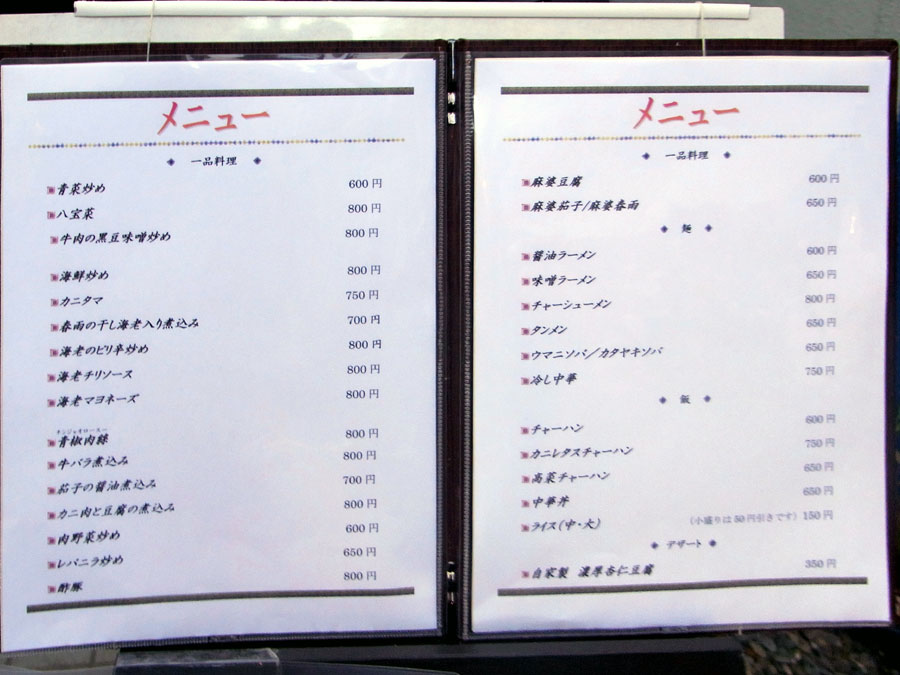 メニュー
一品料理
青菜炒め 600円
八宝菜 800円
牛肉の黒豆味噌炒め 800円
海鮮炒め 800円
カニタマ 750円
春雨の干し海老入り煮込み 700円
海老のピリ辛炒め 800円
海老チリソース 800円
海老マヨネーズ 800円
チンジャオロースー
青椒肉絲 800円
牛バラ煮込み 800円
茄子の醤油煮込み 700円
カニ肉と豆腐の煮込み 800円
肉野菜炒め 600円
レバニラ炒め 650円
酢豚 800円
メニュー
一品料理
麻婆豆腐 600円
麻婆茄子/麻婆春雨 650円
麺
醤油ラーメン 600円
味噌ラーメン 650円
チャーシューメン 800円
タンメン 650円
ウマニソバ/カタヤキソバ 650円
冷し中華 750円
飯
チャーハン 600円
カニレタスチャーハン 750円
高菜チャーハン 650円
中華丼 650円
ライス(中・大) (小盛りは50円引きです) 150円
デザート
自家製 濃厚杏仁豆腐 350円